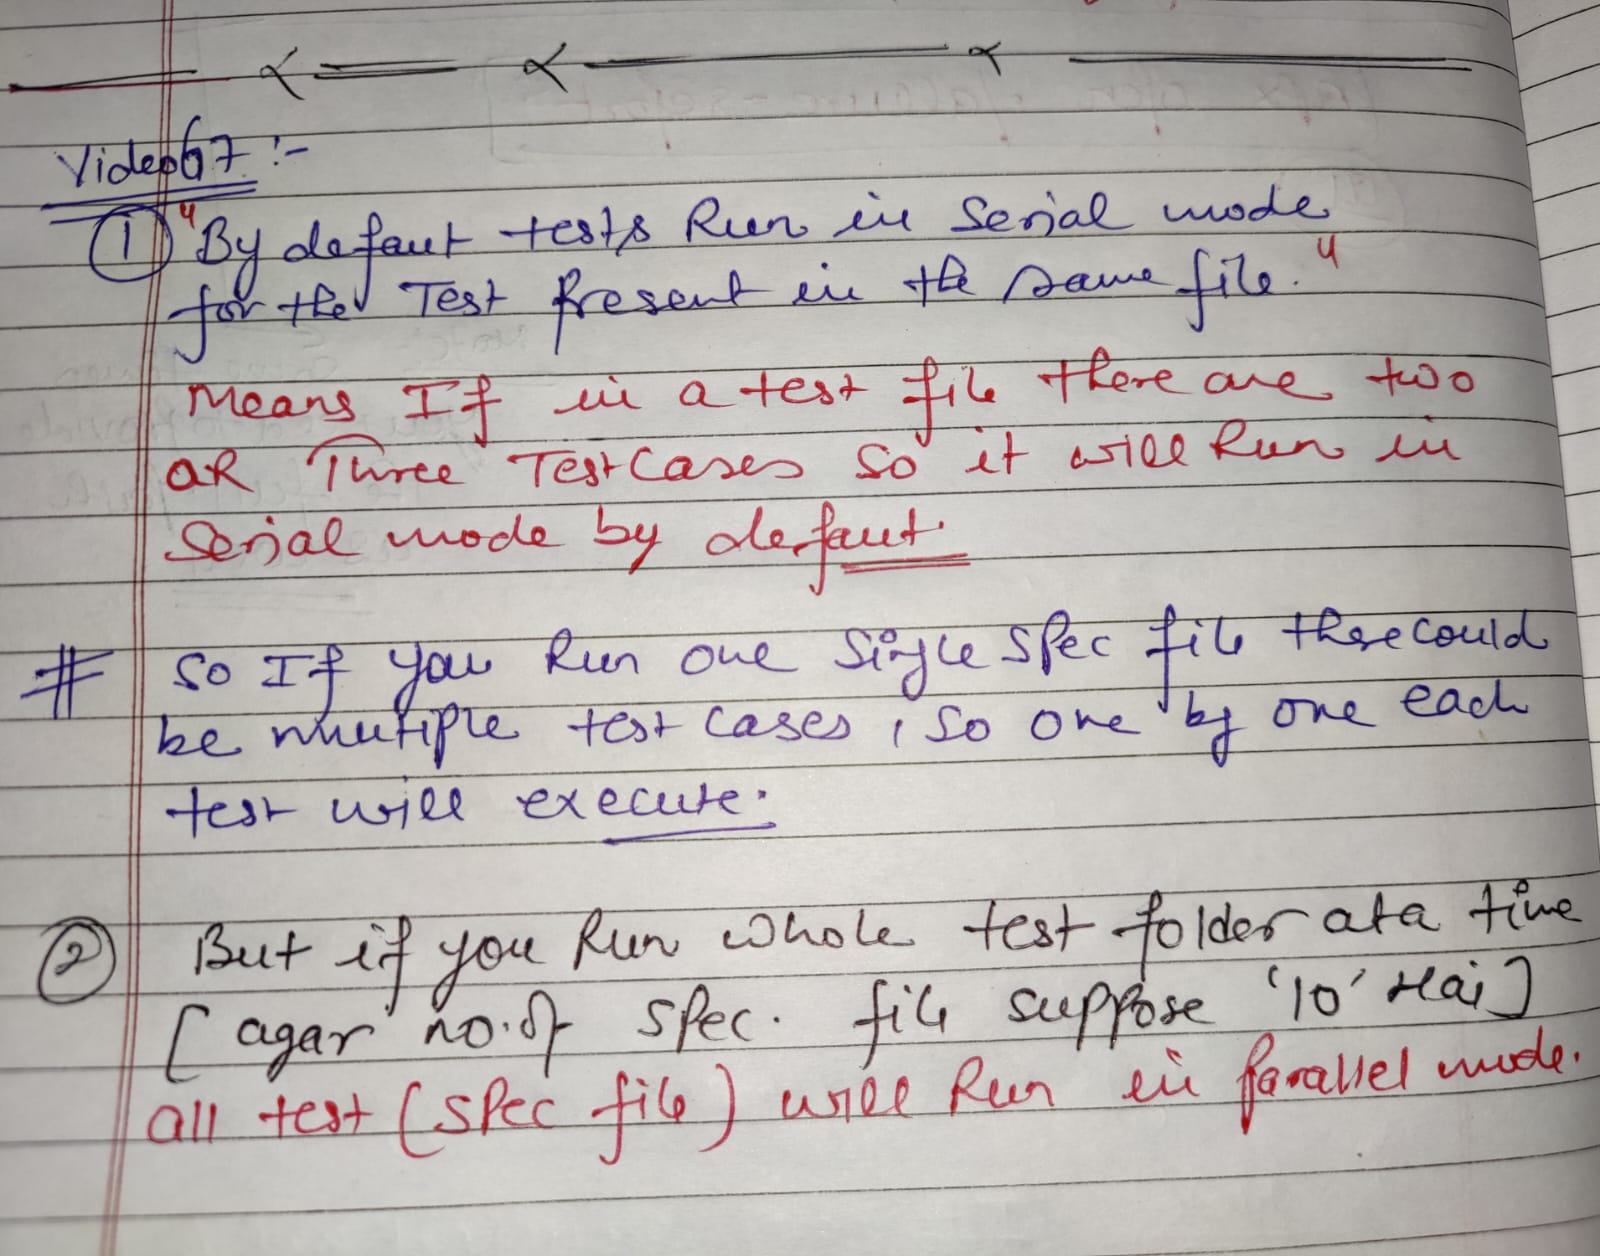 Video67 :-
① "By defaut tests Run in Serial mode
for the Test Present in the same file."
Means If in a test file there are two
OR Three TestCases So it will Run in
Serial mode by defaut.
# So If you Run one Single Spec file there could
be multiple test cases, So one by one each
test will execute.
② But if you Run whole test folder at a time
[agar no. of Spec. file suppose '10' Hai]
all test (Spec file) will Run in Parallel mode.